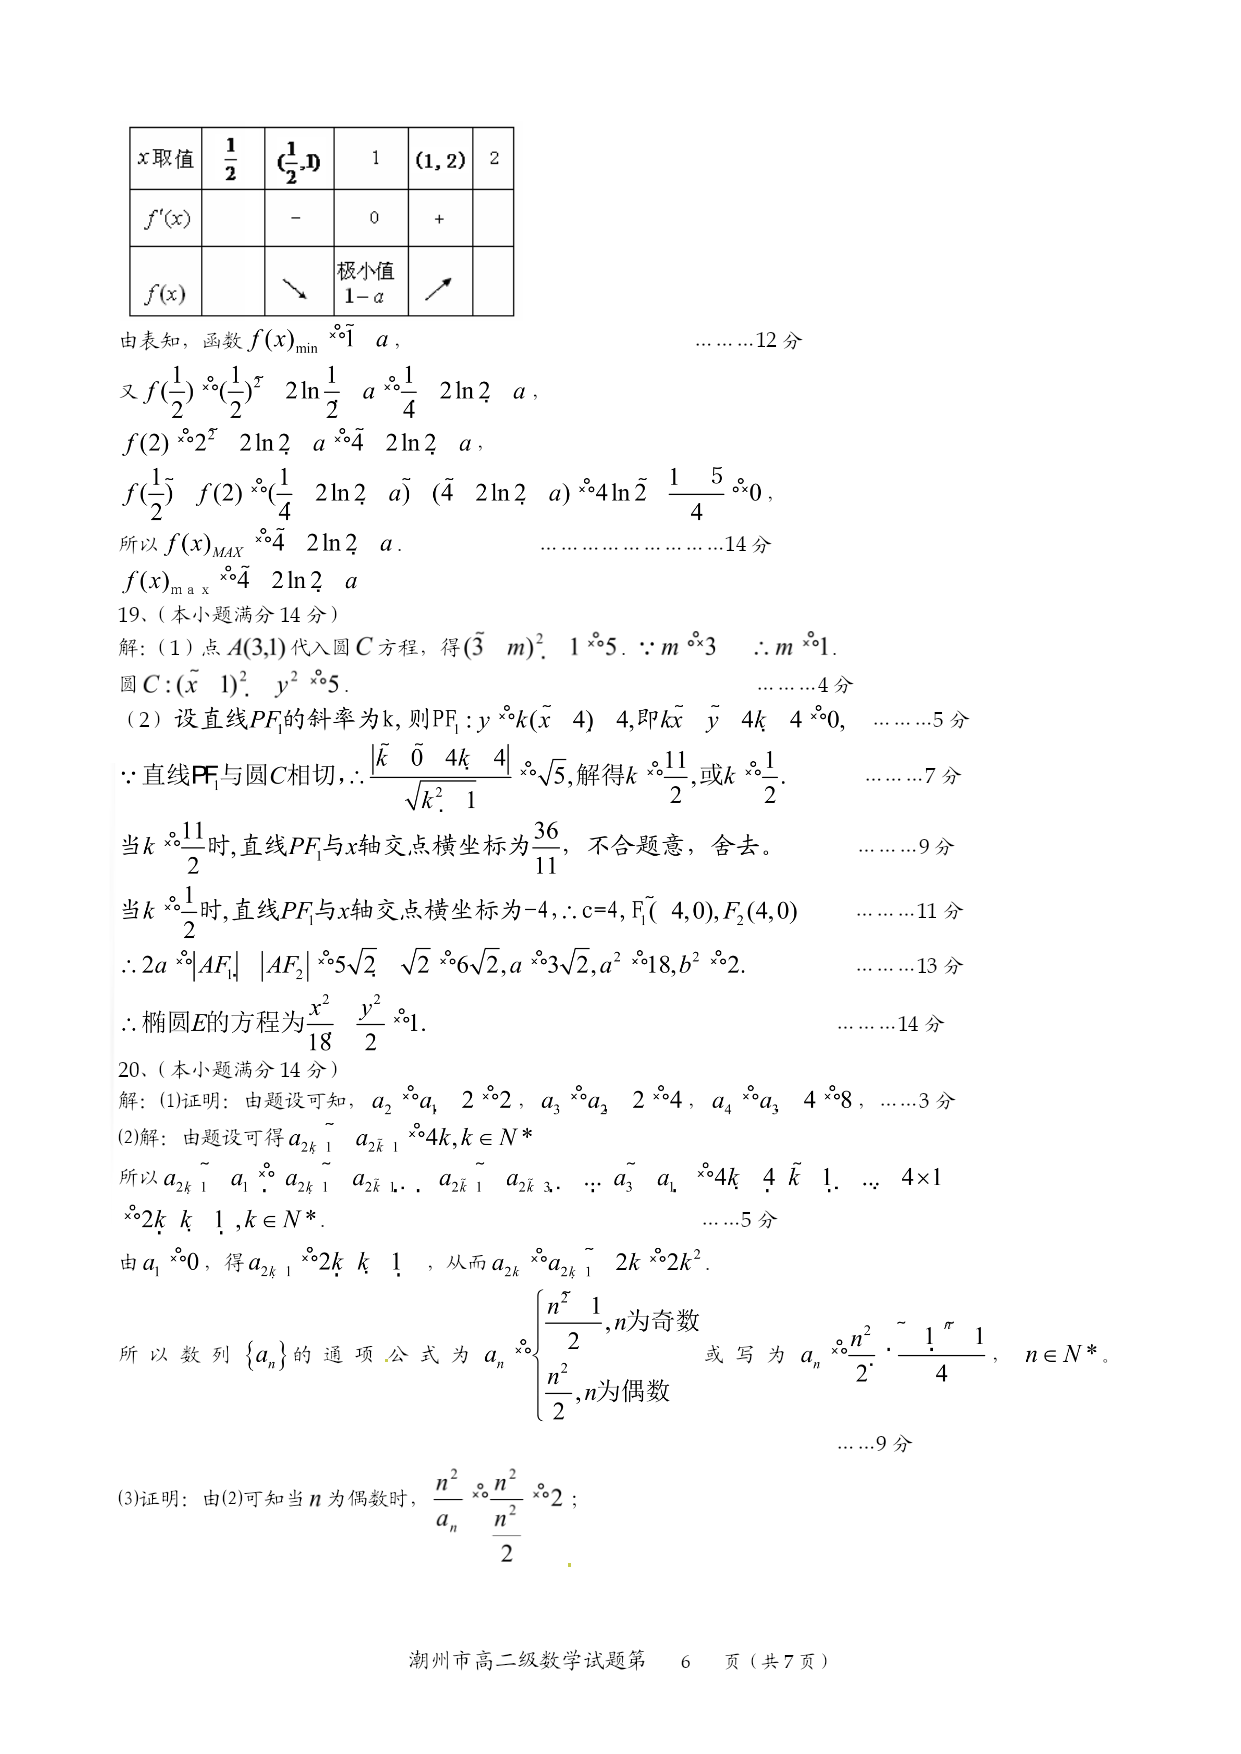 x取值 1/2 (1/2,1) 1 (1,2) 2
f′(x) − 0 +
f(x) ↘ 极小值 1−a ↗
由表知，函数 f(x)min 1 a， ………12分
又 f(1/2) (1/2)² 2ln 1/2 a 1/4 2ln2 a，
f(2) 2² 2ln2 a 4 2ln2 a，
f(1/2) f(2) (1/4 2ln2 a) (4 2ln2 a) 4ln2 (1 5)/4 0，
所以 f(x)MAX 4 2ln2 a. ……………………14分
f(x)max 4 2ln2 a
19、（本小题满分14分）
解：（1）点 A(3,1)代入圆 C 方程，得(3 m)² 1 5. ∵m 3 ∴m 1.
圆 C:(x 1)² y² 5. ………4分
（2）设直线PF₁的斜率为k,则PF₁:y k(x 4) 4,即kx y 4k 4 0, ………5分
∵直线PF₁与圆C相切,∴|k 0 4k 4|/√(k² 1) √5,解得k 11/2,或k 1/2. ………7分
当k 11/2时,直线PF₁与x轴交点横坐标为36/11，不合题意，舍去。 ………9分
当k 1/2时,直线PF₁与x轴交点横坐标为-4,∴c=4,F₁( 4,0),F₂(4,0) ………11分
∴2a |AF₁| |AF₂| 5√2 √2 6√2,a 3√2,a² 18,b² 2. ………13分
∴椭圆E的方程为x²/18 y²/2 1. ………14分
20、（本小题满分14分）
解：⑴证明：由题设可知，a₂ a₁ 2 2，a₃ a₂ 2 4，a₄ a₃ 4 8，……3分
⑵解：由题设可得a₂ₖ ₁ a₂ₖ ₁ 4k,k∈N*
所以a₂ₖ ₁ a₁ a₂ₖ ₁ a₂ₖ ₁ a₂ₖ ₁ a₂ₖ ₃ ... a₃ a₁ 4k 4 k 1 ... 4×1
2k k 1 ,k∈N*. ……5分
由a₁ 0，得a₂ₖ ₁ 2k k 1 ，从而a₂ₖ a₂ₖ ₁ 2k 2k².
所以数列{aₙ}的通项公式为 aₙ {(n² 1)/2,n为奇数 n²/2,n为偶数 或写为 aₙ n²/2 ( 1 ⁿ 1)/4， n∈N*。
……9分
⑶证明：由⑵可知当n为偶数时，n²/aₙ n²/(n²/2) 2；
潮州市高二级数学试题第 6 页（共7页）